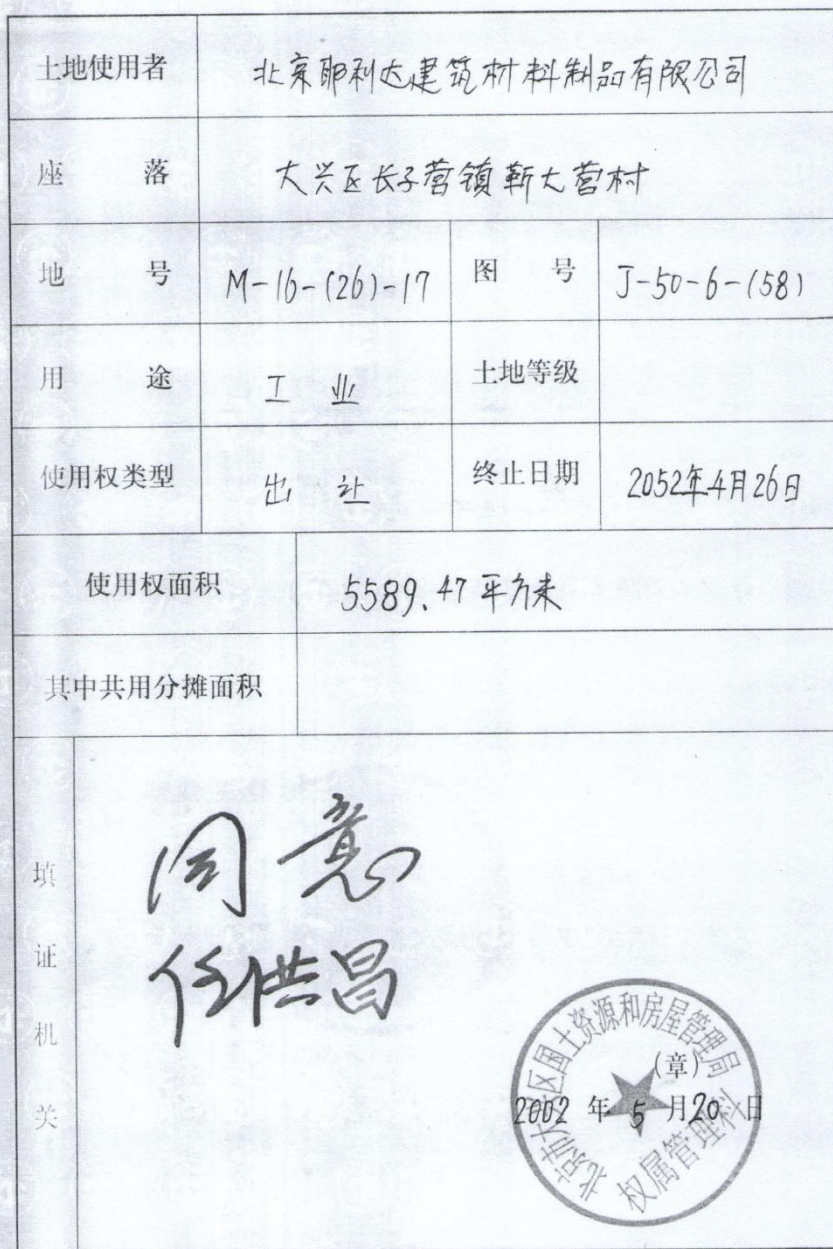 土地使用者 北京耶利达建筑材料制品有限公司
座落 大兴区长子营镇靳七营村
地号 M-16-(26)-17 图号 J-50-6-(58)
用途 工业 土地等级
使用权类型 出让 终止日期 2052年4月26日
使用权面积 5589.47平方米
其中共用分摊面积
填证机关
同意
任洪昌
北京市大兴区国土资源和房屋管理局
(章)
2002年5月20日
权属管理科